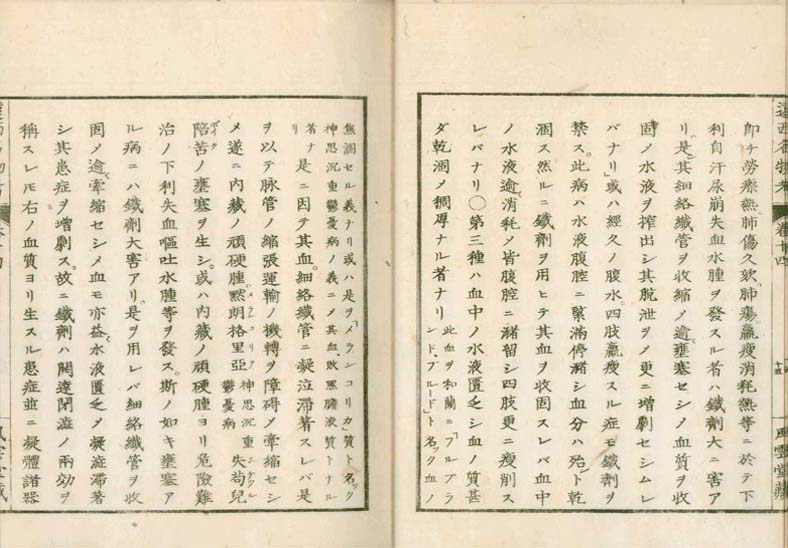 遠西名物考 卷廿四 十五 風雲堂藏
即チ勞瘵熱肺傷久欬肺瘍羸瘦消耗熱等ニ於テ下
利自汗尿崩失血水腫ヲ發スル者ハ鐵劑大ニ害ア
リ是其細絡纎管ヲ收縮メ逾壅塞セシメ血質ヲ收
固メ水液ヲ搾出シ其脫泄ヲメ更ニ增劇セシムレ
バナリ或ハ經久ノ腹水四肢羸瘦スル症モ鐵劑ヲ
禁ス此病ハ水液腹腔ニ緊滿停瀦シ血分ハ殆ト乾
涸ス然ルニ鐵劑ヲ用ヒテ其血ヲ收固スレバ血中
ノ水液逾消耗メ皆腹腔ニ瀦留シ四肢更ニ瘦削ス
レバナリ〇第三種ハ血中ノ水液匱乏シ血ノ質甚
ダ乾涸メ稠厚ナル者ナリ 此血ヲ和蘭ニ「ブルブランド、ブルード」ト名ック血ノ
焦涸セル義ナリ或ハ是ヲ「メランコリカ」質ト名ック
神思沉重鬱憂病ノ義ニメ其血敗黑膽液質トナル
者ナリ 是ニ因テ其血細絡纎管ニ凝泣滯著スレバ是
ヲ以テ脉管ノ縮張運輸ノ機轉ヲ障碍メ牽縮セシ
メ遂ニ內藏ノ頑硬腫默朗格里亞 神思沉重鬱憂病 失苟兒
陪苦ノ壅塞ヲ生シ或ハ內藏ノ頑硬腫ヨリ危險難
治ノ下利失血嘔吐水腫等ヲ發ス斯ノ如キ壅塞ア
ル病ニハ鐵劑大害アリ是ヲ用レバ細絡纎管ヲ收
固メ逾牽縮セシメ血モ亦益水液匱乏メ凝澁滯著
シ其患症ヲ增劇ス故ニ鐵劑ハ開達閉澁ノ兩効ヲ
稱スレモ右ノ血質ヨリ生スル患症並ニ凝體諸器